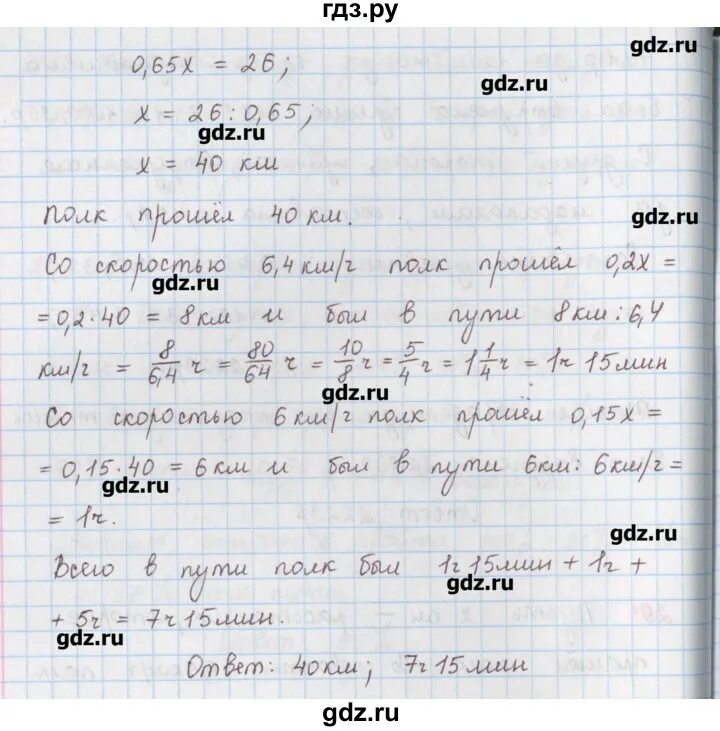 гдз.ру
gdz.ru
0,65х = 26;
gdz.ru
х = 26 : 0,65;
gdz.ru
х = 40 км
Полк прошёл 40 км.
gdz.ru
Со скоростью 6,4 км/ч полк прошёл 0,2х =
gdz.ru
= 0,2·40 = 8 км и был в пути 8 км : 6,4
км/ч = 8/6,4 ч = 80/64 ч = 10/8 ч = 5/4 ч = 1 1/4 ч = 1ч 15 мин
gdz.ru
Со скоростью 6 км/ч полк прошёл 0,15х =
= 0,15·40 = 6 км и был в пути 6 км : 6 км/ч =
gdz.ru
= 1ч.
gdz.ru
Всего в пути полк был 1ч 15 мин + 1ч +
gdz.ru
+ 5ч = 7ч 15 мин.
gdz.ru
Ответ: 40 км; 7ч 15 мин
gdz.ru